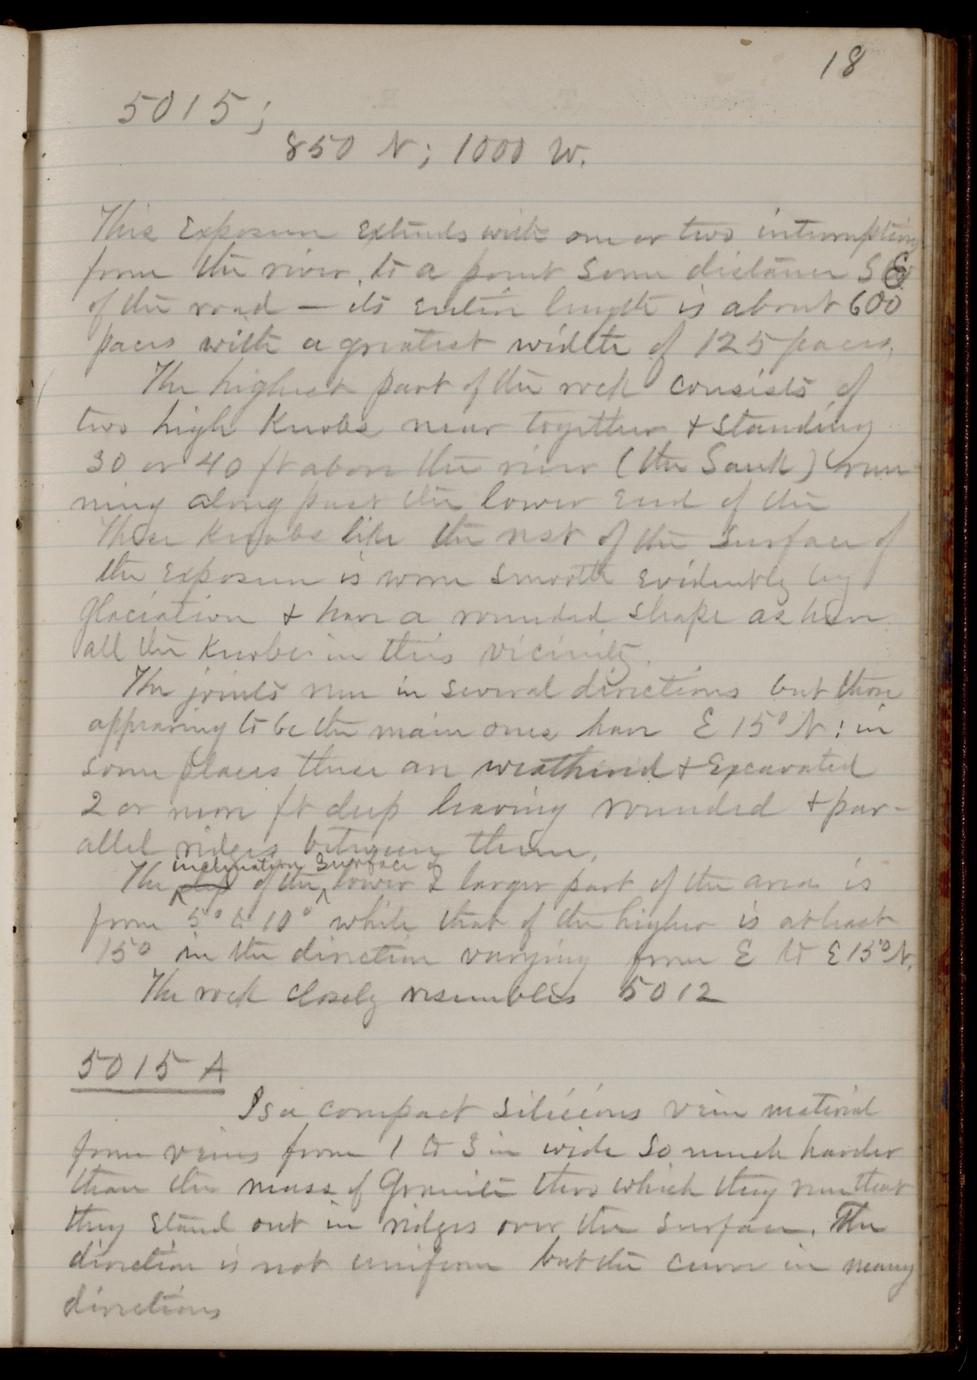 18
5015;
850 N; 1000 W.
This Exposure Extends with one or two interruptions
from the river to a point some distance S
of the road — its entire length is about 600
paces with a greatest width of 125 paces.
The highest part of the rock consists of
two high Knobs near together & standing
30 or 40 ft above the river (the Sauk) run
ning along past the lower End of the
These Knobs like the rest of the surface of
the Exposure is worn smooth evidently by
glaciation & have a rounded shape as have
all the Knobs in this vicinity.
The joints run in several directions but those
appearing to be the main ones have E 15° N: in
some places these are weathered & Excavated
2 or more ft deep leaving rounded & par-
allel ridges between them.
inclination surface of
The dip of the lower & larger part of the area is
from 5° to 10° while that of the higher is at least
15° in the direction varying from E to E 15° N.
The rock closely resembles 5012
5015 A
Is a compact silicious vein material
from veins from 1 to 3 in wide so much harder
than the mass of Granite thro which they run that
they stand out in ridges over the surface. The
direction is not uniform but the curve in many
directions